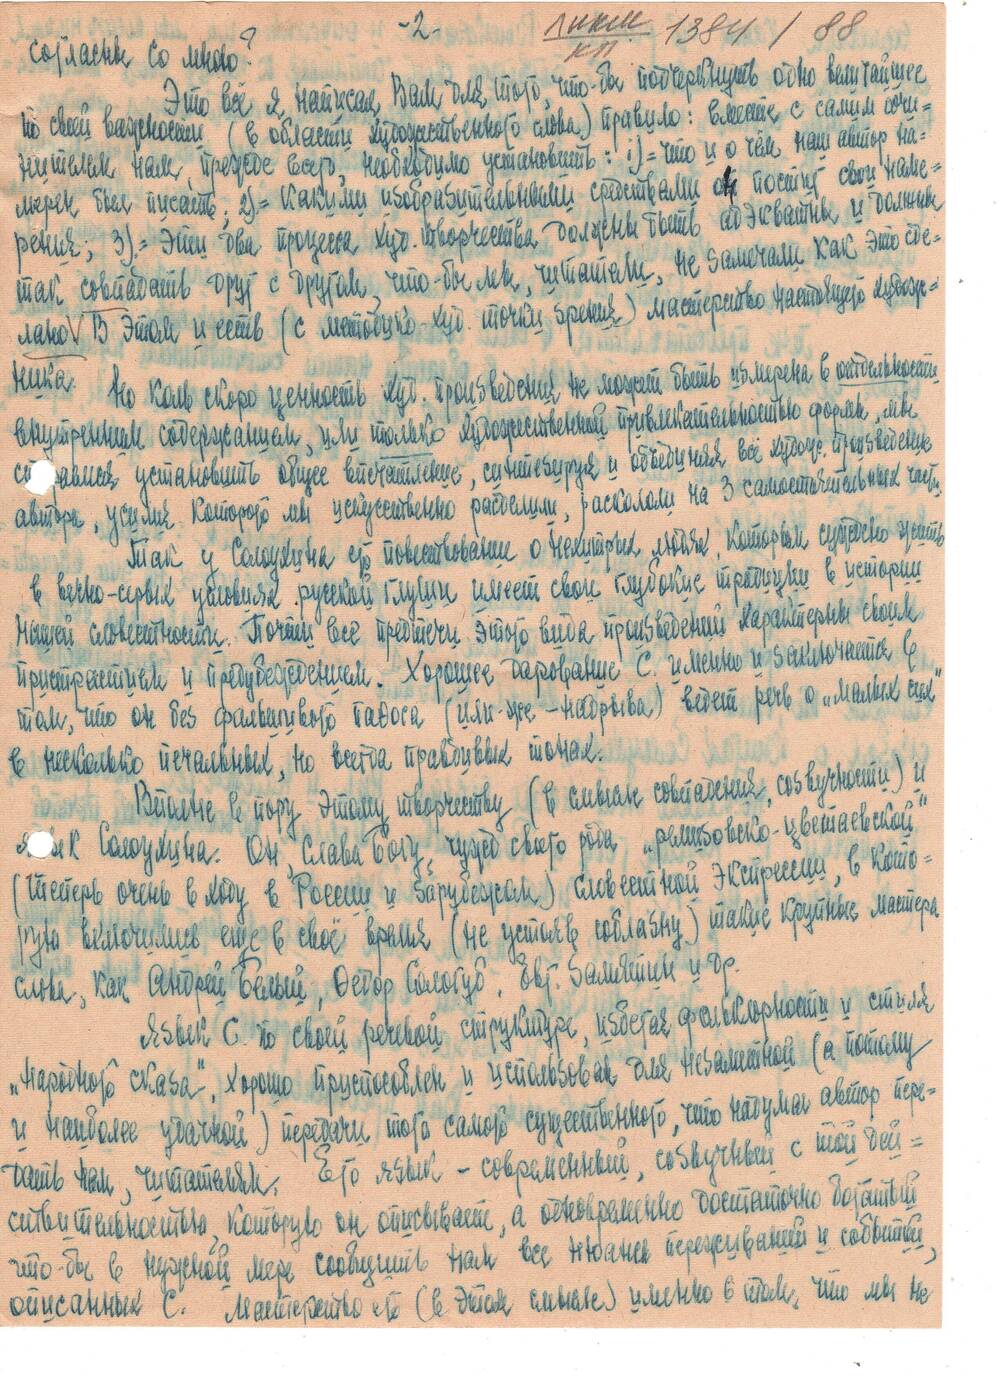 -2-
ЛИКМ
КП. 1384 / 88
согласны со мною?
Это всё я написал Вам для того, что-бы подчеркнуть одно величайшее
по своей важности (в области художественного слова) правило: вместе с самим сочи=
нителем нам, прежде всего, необходимо установить: 1)= что и о чём наш автор на=
мерен был писать; 2)= какими изобразительными средствами он достиг свои наме=
рения; 3)= эти два процесса худ. творчества должны быть адэкватны и должны
так совпадать друг с другом, что-бы мы, читатели, не замечали как это сде=
лано. В этом и есть (с методико-худ. точки зрения) мастерство настоящего худож=
ника.
Но коль скоро ценность худ. произведения не может быть измерена в отдельности
внутренним содержанием, или только художественной привлекательностью формы, мы
старались установить общее впечатление, синтезируя и объединяя всё худож. произведение
автора, усилия которого мы искусственно разделили, раскололи на 3 самостоятельных части.
Так у Солоухина его повествование о нехитрых людях, которым суждено жить
в вечно-серых условиях русской глуши имеет свои глубокие традиции в истории
нашей словесности. Почти все предтечи этого вида произведений характерны своим
пристрастием и предубеждением. Хорошее дарование С. именно и заключается в
том, что он без фальшивого пафоса (или-же - надрыва) ведет речь о „малых сих"
в несколько печальных, но всегда правдивых тонах.
Вполне в пору этому творчеству (в смысле совпадения, созвучности) и
язык Солоухина. Он, слава Богу, чужд своего рода „ремизовско-цветаевской"
(теперь очень в ходу в России и Зарубежом) словестной экспрессии, в кото=
рую включились еще в своё время (не устояв соблазну) такие крупные мастера
слова, как Андрей Белый, Федор Сологуб, Евг. Замятин и др.
Язык С. по своей речевой структуре, избегая фольклорности и стиля
„народного сказа", хорошо приспособлен и использован для незаметной (а потому
и наиболее удачной) передачи того самого существенного, что надумал автор пере=
дать нам, читателям. Его язык - современный, созвучный с той дей=
ствительностью, которую он описывает, а одновременно достаточно богатый,
что-бы в нужной мере сообщить нам все нюансы переживаний и событий,
описанных С. Мастерство его (в этом смысле) именно в том, что мы не